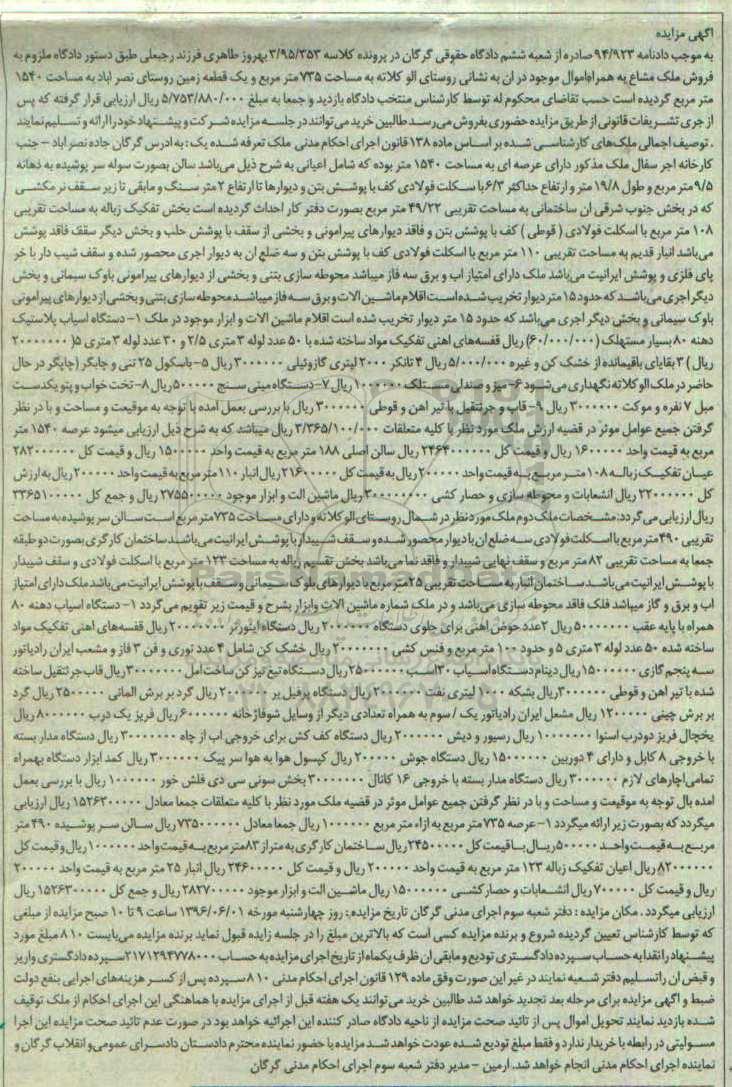 آگهی مزایده
به موجب دادنامه ۹۴/۹۲۳ صادره از شعبه ششم دادگاه حقوقی گرگان در پرونده کلاسه ۳/۹۵/۳۵۳ بهروز طاهری فرزند رجبعلی طبق دستور دادگاه ملزوم به
فروش ملک مشاع به همراه اموال موجود در ان به نشانی روستای الو کلاته به مساحت ۷۳۵ متر مربع و یک قطعه زمین روستای نصر اباد به مساحت ۱۵۴۰
متر مربع گردیده است حسب تقاضای محکوم له توسط کارشناس منتخب دادگاه بازدید و جمعا به مبلغ ۵/۷۵۳/۸۸۰/۰۰۰ ریال ارزیابی قرار گرفته که پس
از جری تشریفات قانونی از طریق مزایده حضوری بفروش می رسد طالبین خرید می توانند در جلسه مزایده شرکت و پیشنهاد خود را ارائه و تسلیم نمایند
. توصیف اجمالی ملک های کارشناسی شده بر اساس ماده ۱۳۸ قانون اجرای احکام مدنی ملک تعرفه شده یک : به ادرس گرگان جاده نصر اباد - جنب
کارخانه اجر سفال ملک مذکور دارای عرصه ای به مساحت ۱۵۴۰ متر بوده که شامل اعیانی به شرح ذیل می باشد سالن بصورت سوله سر پوشیده به دهانه
۹/۵ متر مربع و طول ۱۹/۸ متر و ارتفاع حداکثر ۶/۳ با سکلت فولادی کف با پوشش بتن و دیوارها تا ارتفاع ۲ متر سنگ و مابقی تا زیر سقف نر مکشی
که در بخش جنوب شرقی ان ساختمانی به مساحت تقریبی ۴۹/۲۲ متر مربع بصورت دفتر کار احداث گردیده است بخش تفکیک زباله به مساحت تقریبی
۱۰۸ متر مربع با اسکلت فولادی ( قوطی ) کف با پوشش بتن و فاقد دیوارهای پیرامونی و بخشی از سقف با پوشش حلب و بخش دیگر سقف فاقد پوشش
می باشد انبار قدیم به مساحت تقریبی ۱۱۰ متر مربع با اسکلت فولادی کف با پوشش بتن و سه ضلع ان به دیوار اجری محصور شده و سقف شیب دار با خر
پای فلزی و پوشش ایرانیت می باشد ملک دارای امتیاز اب و برق سه فاز میباشد محوطه سازی بتنی و بخشی از دیوارهای پیرامونی باوک سیمانی و بخش
دیگر اجری می باشد که حدود ۱۵ متر دیوار تخریب شده است اقلام ماشین الات و برق سه فاز میباشد محوطه سازی بتنی و بخشی از دیوارهای پیرامونی
باوک سیمانی و بخش دیگر اجری می باشد که حدود ۱۵ متر دیوار تخریب شده است اقلام ماشین الات و ابزار موجود در ملک ۱- دستگاه اسیاب پلاستیک
دهنه ۸۰ بسیار مستهلک (۶۰/۰۰۰/۰۰۰) ریال قفسه های اهنی تفکیک مواد ساخته شده با ۵۰ عدد لوله ۳ متری ۲/۵ و ۳۰ عدد لوله ۳ متری ۵( ۲۰۰۰۰۰۰۰
ریال ) ۳ بقایای باقیمانده از خشک کن و غیره ۵/۰۰۰/۰۰۰ ریال ۴ تانکر ۲۰۰۰ لیتری گازوئیلی ۳۰۰۰۰۰۰ ریال ۵- باسکول ۲۵ تنی و جابگر (جاپگر در حال
حاضر در ملک الو کلاته نگهداری می شود ۶- میز و صندلی مستهلک ۱۰۰۰۰۰۰ ریال ۷- دستگاه مینی سنج ۵۰۰۰۰۰ ریال ۸- تخت خواب و پتو یکدست
مبل ۷ نفره و موکت ۳۰۰۰۰۰۰ ریال ۹- قاب و جرثقیل با تیر اهن و قوطی ۳۰۰۰۰۰۰ ریال با بررسی بعمل امده با توجه به موقیعت و مساحت و با در نظر
گرفتن جمیع عوامل موثر در قضیه ارزش ملک مورد نظر با کلیه متعلقات ۳/۳۶۵/۱۰۰/۰۰۰ ریال میباشد که به شرح ذیل ارزیابی میشود عرصه ۱۵۴۰ متر
مربع به قیمت واحد ۱۶۰۰۰۰۰ ریال و قیمت کل ۲۴۶۴۰۰۰۰۰۰ ریال سالن اصلی ۱۸۸ متر مربع به قیمت واحد ۱۵۰۰۰۰۰ ریال و قیمت کل ۲۸۲۰۰۰۰۰۰
عیان تفکیک زباله ۱۰۸ متر مربع به قیمت واحد ۲۰۰۰۰۰ ریال به قیمت کل ۲۱۶۰۰۰۰۰ ریال انبار ۱۱۰ متر مربع به قیمت واحد ۲۰۰۰۰۰ ریال به ارزش
کل ۲۲۰۰۰۰۰۰ ریال انشعابات و محوطه سازی و حصار کشی ۳۰۰۰۰۰۰۰۰ ریال ماشین الت و ابزار موجود ۲۷۵۵۰۰۰۰۰ ریال و جمع کل ۳۳۶۵۱۰۰۰۰۰
ریال ارزیابی می گردد. مشخصات ملک دوم ملک مورد نظر در شمال روستای الو کلاته و دارای مساحت ۷۳۵ متر مربع است سالن سر پوشیده به مساحت
تقریبی ۴۹۰ متر مربع با اسکلت فولادی سه ضلع ان با دیوار محصور شده و سقف شیبدار با پوشش ایرانیت می باشد ساختمان کارگری بصورت دو طبقه
جمعا به مساحت تقریبی ۸۲ متر مربع و سقف نهایی شیبدار و فاقد نما می باشد بخش تقسیم زباله به مساحت ۱۲۳ متر مربع با اسکلت فولادی و سقف شیبدار
با پوشش ایرانیت می باشد ساختمان انبار به مساحت تقریبی ۲۵ متر مربع با دیوارهای بلوک سیمانی و سقف با پوشش ایرانیت می باشد ملک دارای امتیاز
اب و برق و گاز میباشد فلک فاقد محوطه سازی می باشد و در ملک شماره ماشین الات وابزار بشرح و قیمت زیر تقویم می گردد ۱- دستگاه اسیاب دهنه ۸۰
همراه با پایه عقب ۵۰۰۰۰۰۰۰ ریال ۲عدد حوض اهنی برای جلوی دستگاه ۲۰۰۰۰۰۰ ریال دستگاه اینورتر ۲۰۰۰۰۰۰۰ ریال قفسه های اهنی تفکیک مواد
ساخته شده ۵۰ عدد لوله ۳ متری ۵ و حدود ۱۰۰ متر مربع و فنس کشی ۲۰۰۰۰۰۰۰ ریال خشک کن شامل ۴ عدد توری و فن ۳ فاز و مشعب ایران رادیاتور
سه پنجم گازی ۱۵۰۰۰۰۰۰ ریال دینام دستگاه اسیاب ۳۰ اسب ۲۵۰۰۰۰۰۰ ریال دستگاه تیغ تیز کن ساخت امل ۳۰۰۰۰۰۰۰ ریال قاب جرثقیل ساخته
شده با تیر اهن و قوطی ۳۰۰۰۰۰۰ ریال بشکه ۱۰۰۰ لیتری نفت ۲۰۰۰۰۰۰ ریال دستگاه پرفیل بر ۲۰۰۰۰۰۰ ریال گرد بر برش المانی ۲۵۰۰۰۰۰ ریال گرد
بر برش چینی ۱۲۰۰۰۰۰ ریال مشعل ایران رادیاتور یک / سوم به همراه تعدادی دیگر از وسایل شوفاژ خانه ۶۰۰۰۰۰۰ ریال فریز یک درب ۸۰۰۰۰۰۰ ریال
یخچال فریز دودرب اسنوا ۱۰۰۰۰۰۰۰ ریال رسیور و دیش ۲۰۰۰۰۰۰ ریال دستگاه کف کش برای خروجی اب از چاه ۳۰۰۰۰۰۰ ریال دستگاه مدار بسته
با خروجی ۸ کابل و دارای ۴ دوربین ۱۵۰۰۰۰۰۰ ریال دستگاه جوش ۲۰۰۰۰۰۰ ریال کپسول هوا به هوا سر پیک ۳۰۰۰۰۰۰ ریال کمد ابزار دستگاه بهمراه
تمامی اچارهای لازم ۳۰۰۰۰۰۰ ریال دستگاه مدار بسته با خروجی ۱۶ کانال ۳۰۰۰۰۰۰ بخش سونی سی دی فلش خور ۱۰۰۰۰۰۰ ریال با بررسی بعمل
امده بال توجه به موقیعت و مساحت و با در نظر گرفتن جمیع عوامل موثر در قضیه ملک مورد نظر با کلیه متعلقات جمعا معادل ۱۵۲۶۳۰۰۰۰۰ ریال ارزیابی
میگردد که بصورت زیر ارائه میگردد ۱- عرصه ۷۳۵ متر مربع به ازاء متر مربع ۱۰۰۰۰۰۰ ریال جمعا معادل ۷۳۵۰۰۰۰۰۰ ریال سالن سر پوشیده ۴۹۰ متر
مربع به قیمت واحد ۵۰۰۰۰۰ ریال با قیمت کل ۲۴۵۰۰۰۰۰۰ ریال ساختمان کارگری به متراژ ۸۳ متر مربع به قیمت واحد ۱۰۰۰۰۰۰ ریال و قیمت کل
۸۲۰۰۰۰۰۰ ریال اعیان تفکیک زباله ۱۲۳ متر مربع به قیمت واحد ۲۰۰۰۰۰ ریال و قیمت کل ۲۴۶۰۰۰۰۰ ریال انبار ۲۵ متر مربع به قیمت واحد ۲۰۰۰۰۰
ریال و قیمت کل ۷۰۰۰۰۰ ریال انشعابات و حصار کشی ۱۵۰۰۰۰۰۰ ریال ماشین الت و ابزار موجود ۲۸۲۷۰۰۰۰۰ ریال و جمع کل ۱۵۲۶۳۰۰۰۰۰ ریال
ارزیابی میگردد . مکان مزایده : دفتر شعبه سوم اجرای مدنی گرگان تاریخ مزایده : روز چهارشنبه مورخه ۱۳۹۶/۰۶/۰۱ ساعت ۹ تا ۱۰ صبح مزایده از مبلغی
که توسط کارشناس تعیین گردیده شروع و برنده مزایده کسی است که بالاترین مبلغ را در جلسه زایده قبول نماید برنده مزایده می بایست ۱۰٪ مبلغ مورد
پیشنهاد را نقدا به حساب سپرده دادگستری تودیع و مابقی ان ظرف یکماه از تاریخ اجرای مزایده به حساب ۲۱۷۱۲۹۴۷۷۸۰۰۰ سپرده دادگستری واریز
و قبض ان را تسلیم دفتر شعبه نمایند در غیر این صورت وفق ماده ۱۲۹ قانون اجرای احکام مدنی ۱۰٪ سپرده پس از کسر هزینه های اجرایی بنفع دولت
ضبط و آگهی مزایده برای مرحله بعد تجدید خواهد شد طالبین خرید می توانند یک هفته قبل از اجرای مزایده با هماهنگی این اجرای احکام از ملک توقیف
شده بازدید نمایند تحویل اموال پس از تائید صحت مزایده از ناحیه دادگاه صادر کننده این اجرائیه خواهد بود در صورت عدم تائید صحت مزایده این اجرا
مسولیتی در رابطه با خریدار ندارد و فقط مبلغ تودیع شده عودت خواهد شد مزایده با حضور نماینده محترم دادستان دادسرای عمومی و انقلاب گرگان و
نماینده اجرای احکام مدنی انجام خواهد شد. ارمین - مدیر دفتر شعبه سوم اجرای احکام مدنی گرگان